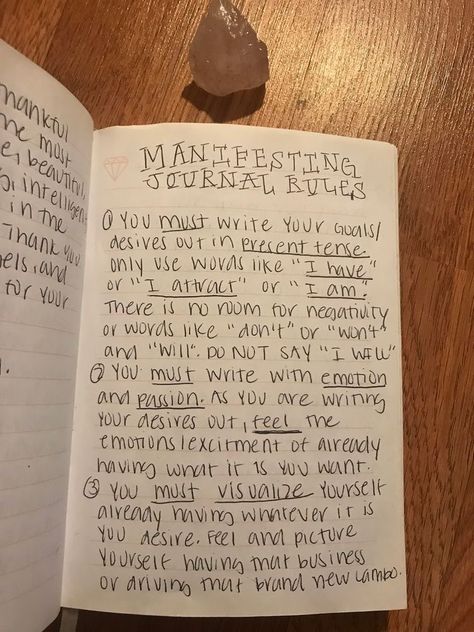 thankful
the most
beautiful,
intelligent
in the
Thank you
and
for your
MANIFESTING
JOURNAL RULES
① YOU must write your goals/
desires out in present tense.
only use words like "I have"
or "I attract" or "I am".
There is no room for negativity
or words like "don't" or "won't"
and "will". DO NOT SAY "I WILL"
② YOU must write with emotion
and passion. As you are writing
your desires out, feel the
emotions/excitment of already
having what it is you want.
③ YOU must visualize yourself
already having whatever it is
you desire. Feel and picture
yourself having that business
or driving that brand new lambo.